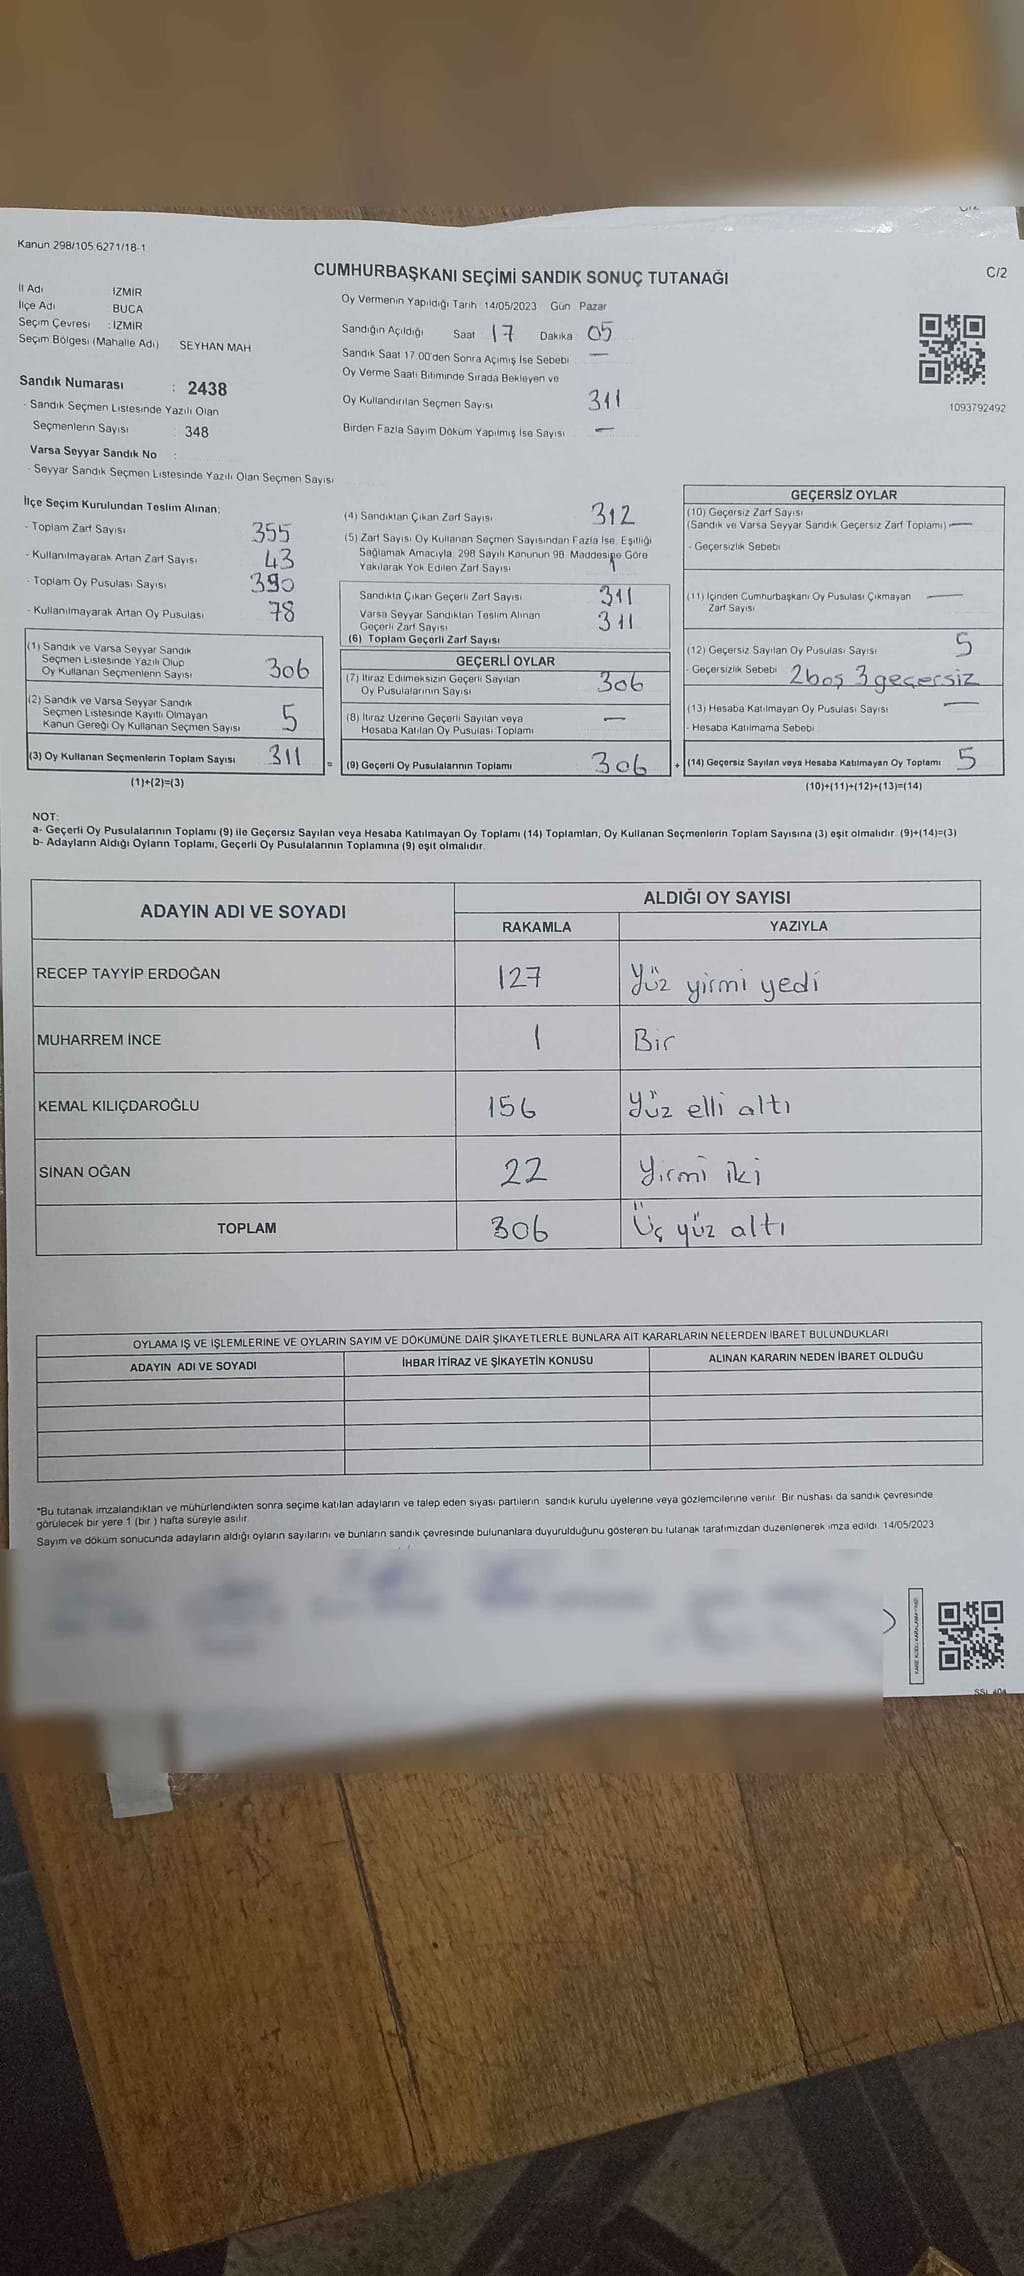 Kanun 298/105 6271/18-1
CUMHURBAŞKANI SEÇİMİ SANDIK SONUÇ TUTANAĞI
C/2
İl Adı İZMİR
İlçe Adı BUCA
Seçim Çevresi : İZMİR
Seçim Bölgesi (Mahalle Adı) SEYHAN MAH
Sandık Numarası : 2438
- Sandık Seçmen Listesinde Yazılı Olan
Seçmenlerin Sayısı : 348
Varsa Seyyar Sandık No :
- Seyyar Sandık Seçmen Listesinde Yazılı Olan Seçmen Sayısı
Oy Vermenin Yapıldığı Tarih 14/05/2023 Gün Pazar
Sandığın Açıldığı Saat 17 Dakika 05
Sandık Saat 17 00'den Sonra Açımış İse Sebebi —
Oy Verme Saati Bitiminde Sırada Bekleyen ve
Oy Kullandırılan Seçmen Sayısı 311
Birden Fazla Sayım Döküm Yapılmış İse Sayısı —
1093792492
İlçe Seçim Kurulundan Teslim Alınan;
- Toplam Zarf Sayısı 355
- Kullanılmayarak Artan Zarf Sayısı 43
- Toplam Oy Pusulası Sayısı 390
- Kullanılmayarak Artan Oy Pusulası 78
(1) Sandık ve Varsa Seyyar Sandık
Seçmen Listesinde Yazılı Olup
Oy Kullanan Seçmenlerin Sayısı 306
(2) Sandık ve Varsa Seyyar Sandık
Seçmen Listesinde Kayıtlı Olmayan
Kanun Gereği Oy Kullanan Seçmen Sayısı 5
(3) Oy Kullanan Seçmenlerin Toplam Sayısı 311
(1)+(2)=(3)
=
(4) Sandıktan Çıkan Zarf Sayısı 312
(5) Zarf Sayısı Oy Kullanan Seçmen Sayısından Fazla İse, Eşitliği
Sağlamak Amacıyla, 298 Sayılı Kanunun 98 Maddesine Göre
Yakılarak Yok Edilen Zarf Sayısı 1
Sandıkta Çıkan Geçerli Zarf Sayısı 311
Varsa Seyyar Sandıktan Teslim Alınan
Geçerli Zarf Sayısı 311
(6) Toplam Geçerli Zarf Sayısı
GEÇERLİ OYLAR
(7) İtiraz Edilmeksizin Geçerli Sayılan
Oy Pusulalarının Sayısı 306
(8) İtiraz Üzerine Geçerli Sayılan veya
Hesaba Katılan Oy Pusulası Toplamı —
(9) Geçerli Oy Pusulalarının Toplamı 306
+
GEÇERSİZ OYLAR
(10) Geçersiz Zarf Sayısı
(Sandık ve Varsa Seyyar Sandık Geçersiz Zarf Toplamı) —
- Geçersizlik Sebebi
(11) İçinden Cumhurbaşkanı Oy Pusulası Çıkmayan
Zarf Sayısı —
(12) Geçersiz Sayılan Oy Pusulası Sayısı 5
- Geçersizlik Sebebi 2 boş 3 geçersiz
(13) Hesaba Katılmayan Oy Pusulası Sayısı —
- Hesaba Katılmama Sebebi
(14) Geçersiz Sayılan veya Hesaba Katılmayan Oy Toplamı 5
(10)+(11)+(12)+(13)=(14)
NOT:
a- Geçerli Oy Pusulalarının Toplamı (9) ile Geçersiz Sayılan veya Hesaba Katılmayan Oy Toplamı (14) Toplamları, Oy Kullanan Seçmenlerin Toplam Sayısına (3) eşit olmalıdır. (9)+(14)=(3)
b- Adayların Aldığı Oyların Toplamı, Geçerli Oy Pusulalarının Toplamına (9) eşit olmalıdır.
ADAYIN ADI VE SOYADI
ALDIĞI OY SAYISI
RAKAMLA YAZIYLA
RECEP TAYYİP ERDOĞAN 127 Yüz yirmi yedi
MUHARREM İNCE 1 Bir
KEMAL KILIÇDAROĞLU 156 Yüz elli altı
SİNAN OĞAN 22 Yirmi iki
TOPLAM 306 Üç yüz altı
OYLAMA İŞ VE İŞLEMLERİNE VE OYLARIN SAYIM VE DÖKÜMÜNE DAİR ŞİKAYETLERLE BUNLARA AİT KARARLARIN NELERDEN İBARET BULUNDUKLARI
ADAYIN ADI VE SOYADI İHBAR İTİRAZ VE ŞİKAYETİN KONUSU ALINAN KARARIN NEDEN İBARET OLDUĞU
*Bu tutanak imzalandıktan ve mühürlendikten sonra seçime katılan adayların ve talep eden siyasi partilerin sandık kurulu üyelerine veya gözlemcilerine verilir Bir nüshası da sandık çevresinde
görülecek bir yere 1 (bir ) hafta süreyle asılır.
Sayım ve döküm sonucunda adayların aldığı oyların sayılarını ve bunların sandık çevresinde bulunanlara duyurulduğunu gösteren bu tutanak tarafımızdan düzenlenerek imza edildi 14/05/2023